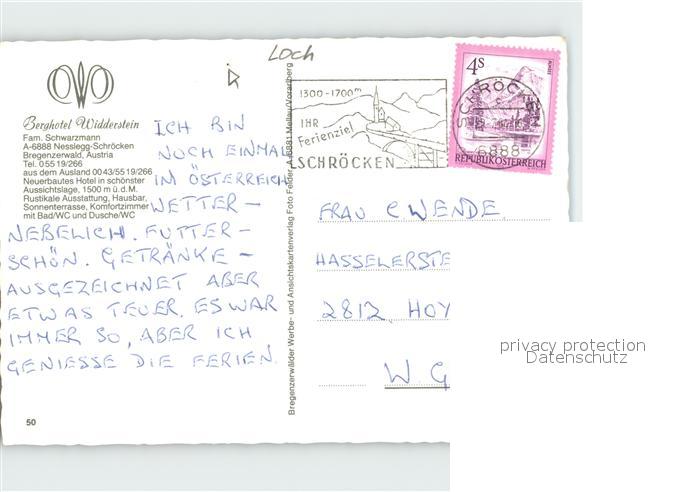 Loch
Berghotel Widderstein
Fam. Schwarzmann
A-6888 Nesslegg-Schröcken
Bregenzerwald, Austria
Tel. 05519/266
aus dem Ausland 0043/5519/266
Neuerbautes Hotel in schönster
Aussichtslage, 1500 m ü.d.M.
Rustikale Ausstattung, Hausbar,
Sonnenterrasse, Komfortzimmer
mit Bad/WC und Dusche/WC
ICH BIN
NOCH EINMAL
IM ÖSTERREICH
WETTER –
NEBELICH. FUTTER –
SCHÖN. GETRÄNKE –
AUSGEZEICHNET ABER
ETWAS TEUER. ES WAR
IMMER SO, ABER ICH
GENIESSE DIE FERIEN.
50
Bregenzerwälder Werbe- und Ansichtskartenverlag Foto Felder A-6881 Mellau/Vorarlberg
1300-1700m
IHR
Ferienziel
SCHRÖCKEN
4S
REPUBLIK ÖSTERREICH
SCHRÖCKEN
6888
FRAU C WENDE
HASSELERSTE
2812 HOY
W G
privacy protection
Datenschutz